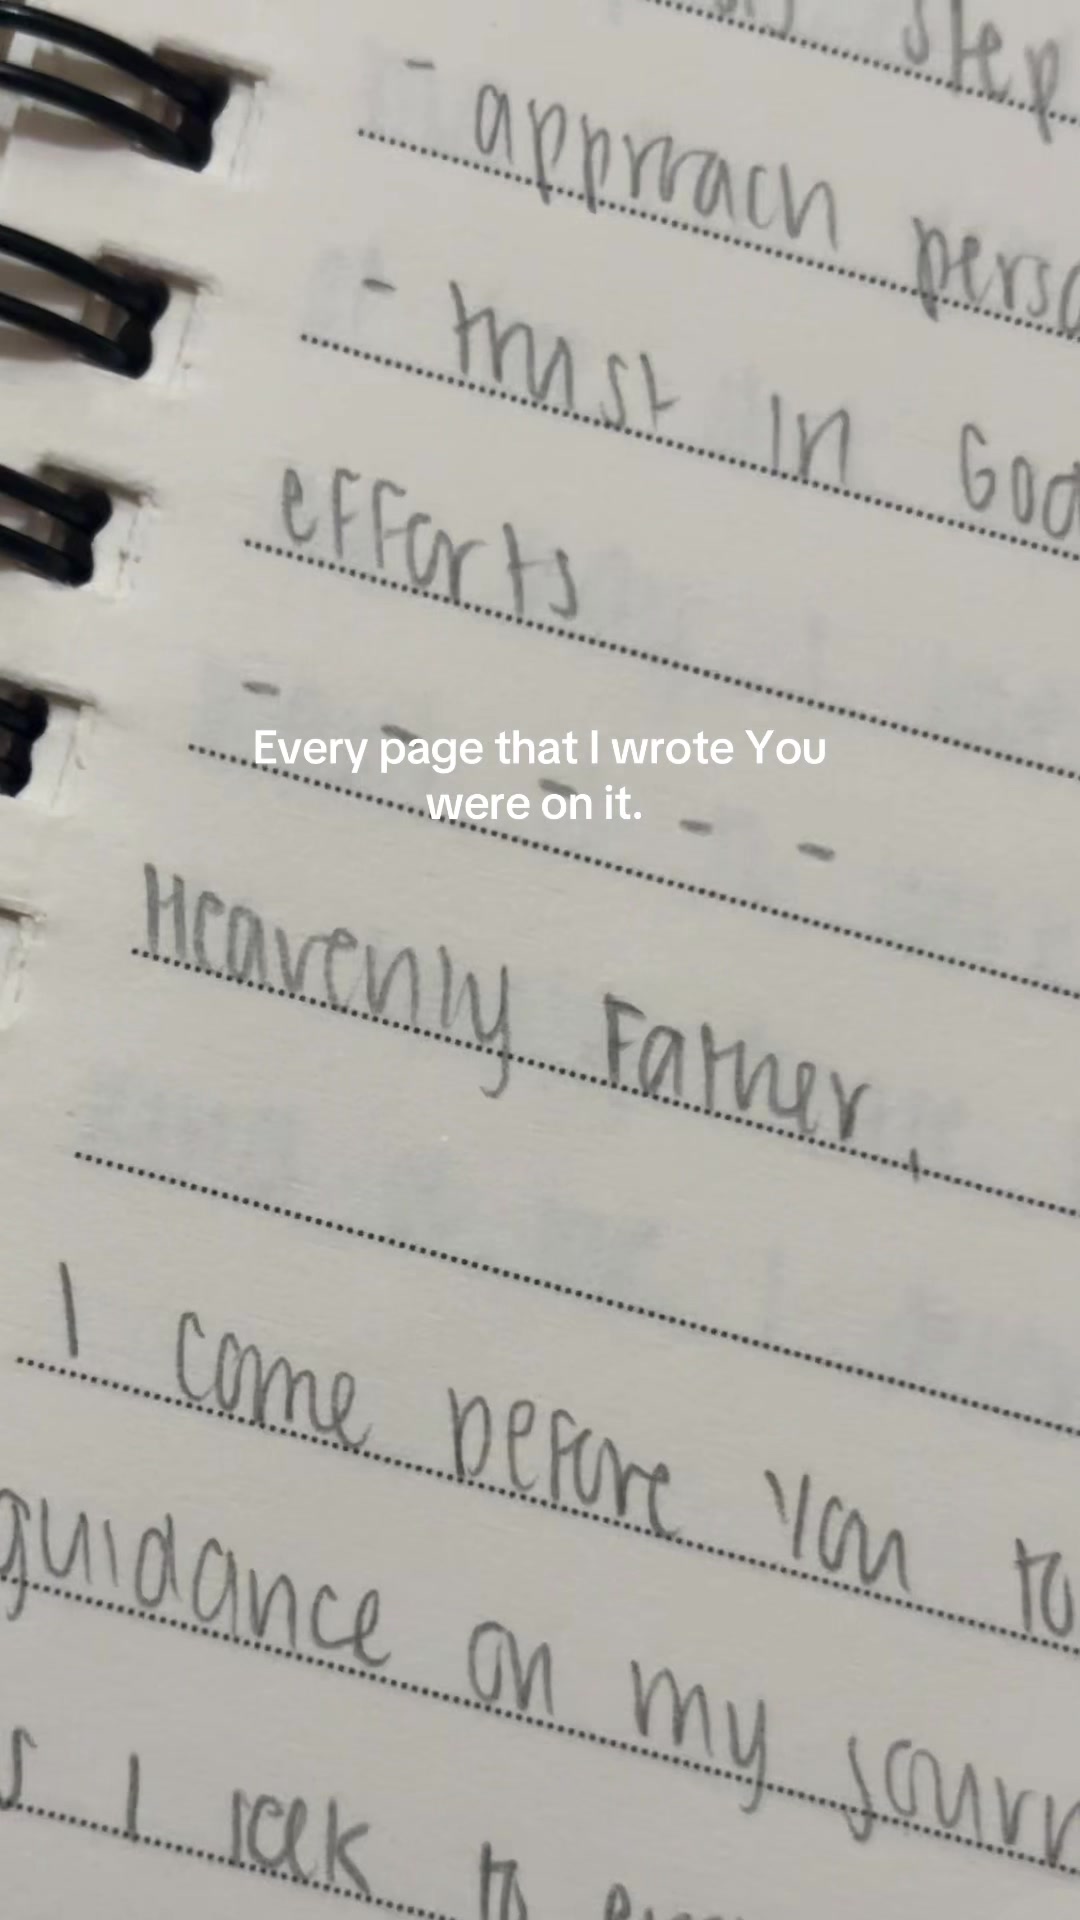 step
- approach
- trust in God
efforts
- - - - -
Every page that I wrote You
were on it.
Heavenly Father,
I come before You to
guidance on my
I seek to